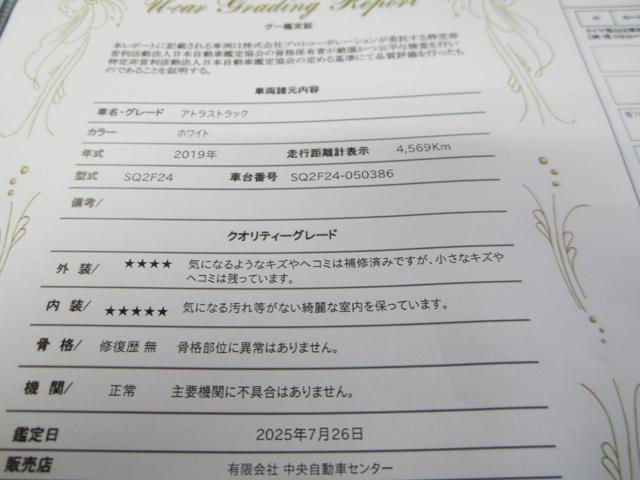 U-car Grading Report
グー鑑定証
本レポートに記載される車両は株式会社プロトコーポレーションが委託する特定非
営利活動法人日本自動車鑑定協会の資格保有者が厳選かつ公平な検査を行い
特定非営利活動法人日本自動車鑑定協会の定める基準にて品質評価を行ったも
のであることを証明する。
車両諸元内容
車名・グレード アトラストラック
カラー ホワイト
年式 2019年 走行距離計表示 4,569Km
型式 SQ2F24 車台番号 SQ2F24-050386
備考/
クオリティーグレード
外 装/ ★★★★ 気になるようなキズやヘコミは補修済みですが、小さなキズや
ヘコミは残っています。
内 装/ ★★★★★ 気になる汚れ等がない綺麗な室内を保っています。
骨 格/ 修復歴 無 骨格部位に異常はありません。
機 関/ 正常 主要機関に不具合はありません。
鑑定日 2025年7月26日
販売店 有限会社 中央自動車センター